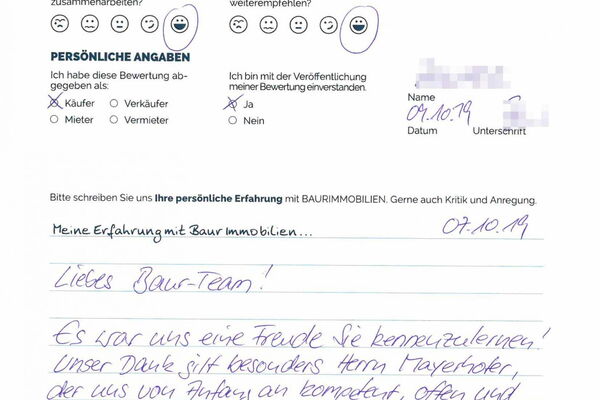 zusammenarbeiten?
weiterempfehlen?
PERSÖNLICHE ANGABEN
Ich habe diese Bewertung ab-
gegeben als:
Käufer Verkäufer
Mieter Vermieter
Ich bin mit der Veröffentlichung
meiner Bewertung einverstanden.
Ja
Nein
Name
07.10.19
Datum Unterschrift
Bitte schreiben Sie uns Ihre persönliche Erfahrung mit BAURIMMOBILIEN. Gerne auch Kritik und Anregung.
Meine Erfahrung mit Baur Immobilien... 07.10.19
Liebes Baur-Team!
Es war uns eine Freude Sie kennenzulernen!
Unser Dank gilt besonders Herrn Mayerhofer,
der uns von Anfang an kompetent, offen und